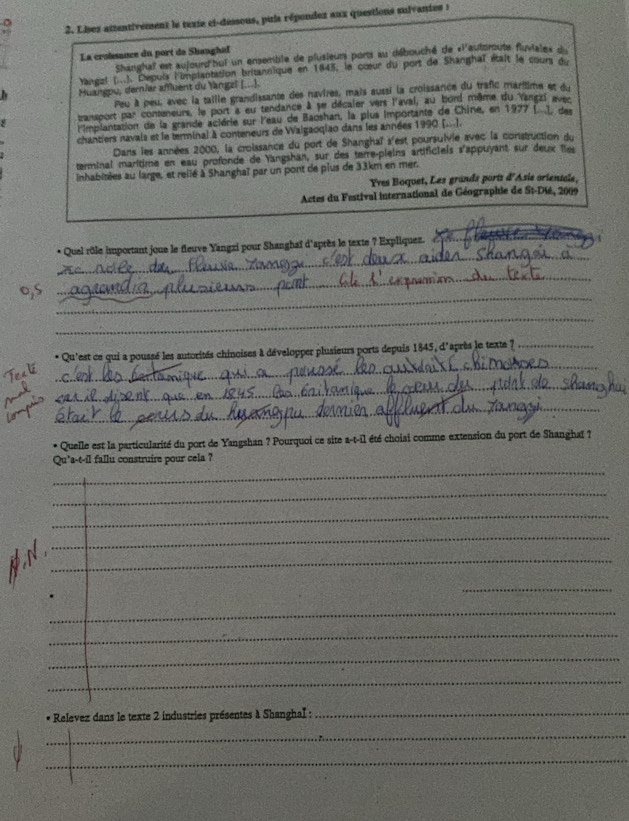 2. Lisez attentivement le texte ci-dessous, puis répondez aux questions suivantes :
La croissance du port de Shanghaï
Shanghaï est aujourd'hui un ensemble de plusieurs ports au débouché de «l'autoroute fluviale» du
Yangzi [...]. Depuis l'implantation britannique en 1845, le cœur du port de Shanghaï était le cours du
Huangpu, dernier affluent du Yangzi [...].
Peu à peu, avec la taille grandissante des navires, mais aussi la croissance du trafic maritime et du
transport par conteneurs, le port a eu tendance à se décaler vers l'aval, au bord même du Yangzi avec
l'implantation de la grande aciérie sur l'eau de Baoshan, la plus importante de Chine, en 1977 [...], des
chantiers navals et le terminal à conteneurs de Waigaoqiao dans les années 1990 [...].
Dans les années 2000, la croissance du port de Shanghaï s'est poursuivie avec la construction du
terminal maritime en eau profonde de Yangshan, sur des terre-pleins artificiels s'appuyant sur deux îles
inhabitées au large, et relié à Shanghaï par un pont de plus de 33km en mer.
Yves Boquet, Les grands ports d'Asie orientale,
Actes du Festival international de Géographie de St-Dié, 2009
• Quel rôle important joue le fleuve Yangzi pour Shanghaï d'après le texte ? Expliquez.
c'est aider à
0,5 plusieurs port du texte
• Qu'est ce qui a poussé les autorités chinoises à développer plusieurs ports depuis 1845, d'après le texte ?
Texte c'est les qui a poussé les
mal que en 1845 les du de Shanghai
compris était le cours du dernier affluent du
• Quelle est la particularité du port de Yangshan ? Pourquoi ce site a-t-il été choisi comme extension du port de Shanghaï ?
Qu'a-t-il fallu construire pour cela ?
N.N.
• Relevez dans le texte 2 industries présentes à Shanghaï :